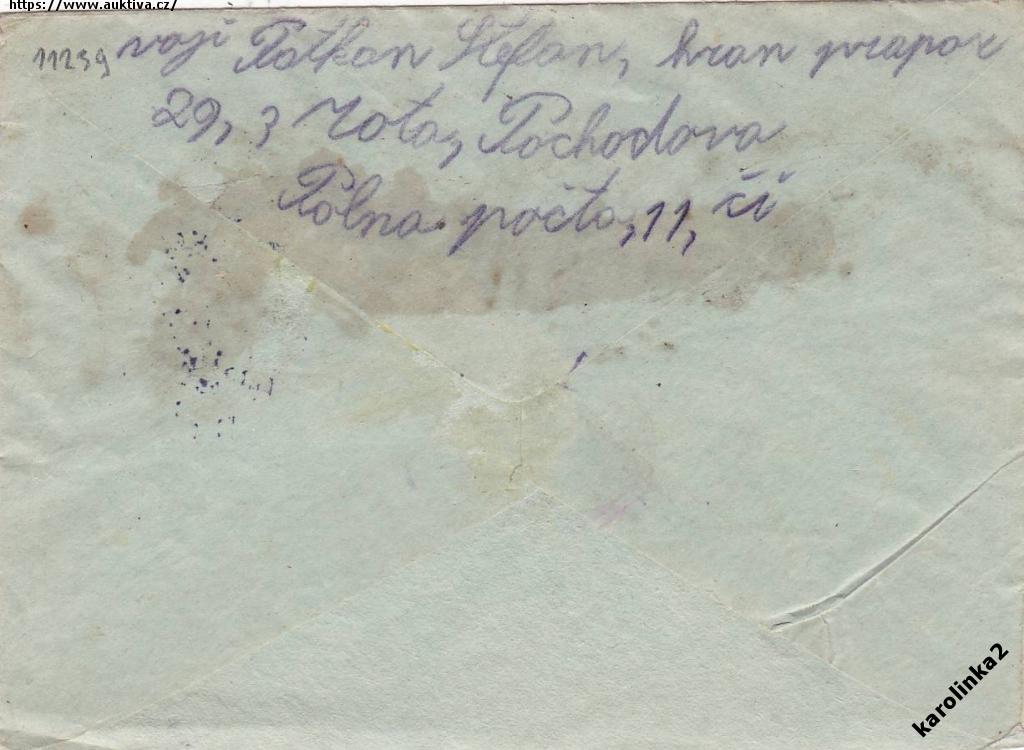 https://www.auktiva.cz/
11259 voji Patkan Štefan, hran prapor
29, 3 rota, Pochodova
Polna počta, 11, či
karolinka2